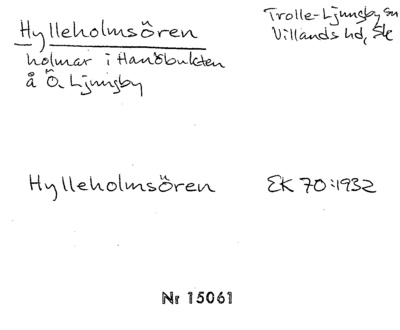 Hylleholmsören
Trolle-Ljungby sn
Villands hd, Sk
holmar i Hanöbukten
å Ö. Ljungby
Hylleholmsören
EK 70:1932
Nr 15061